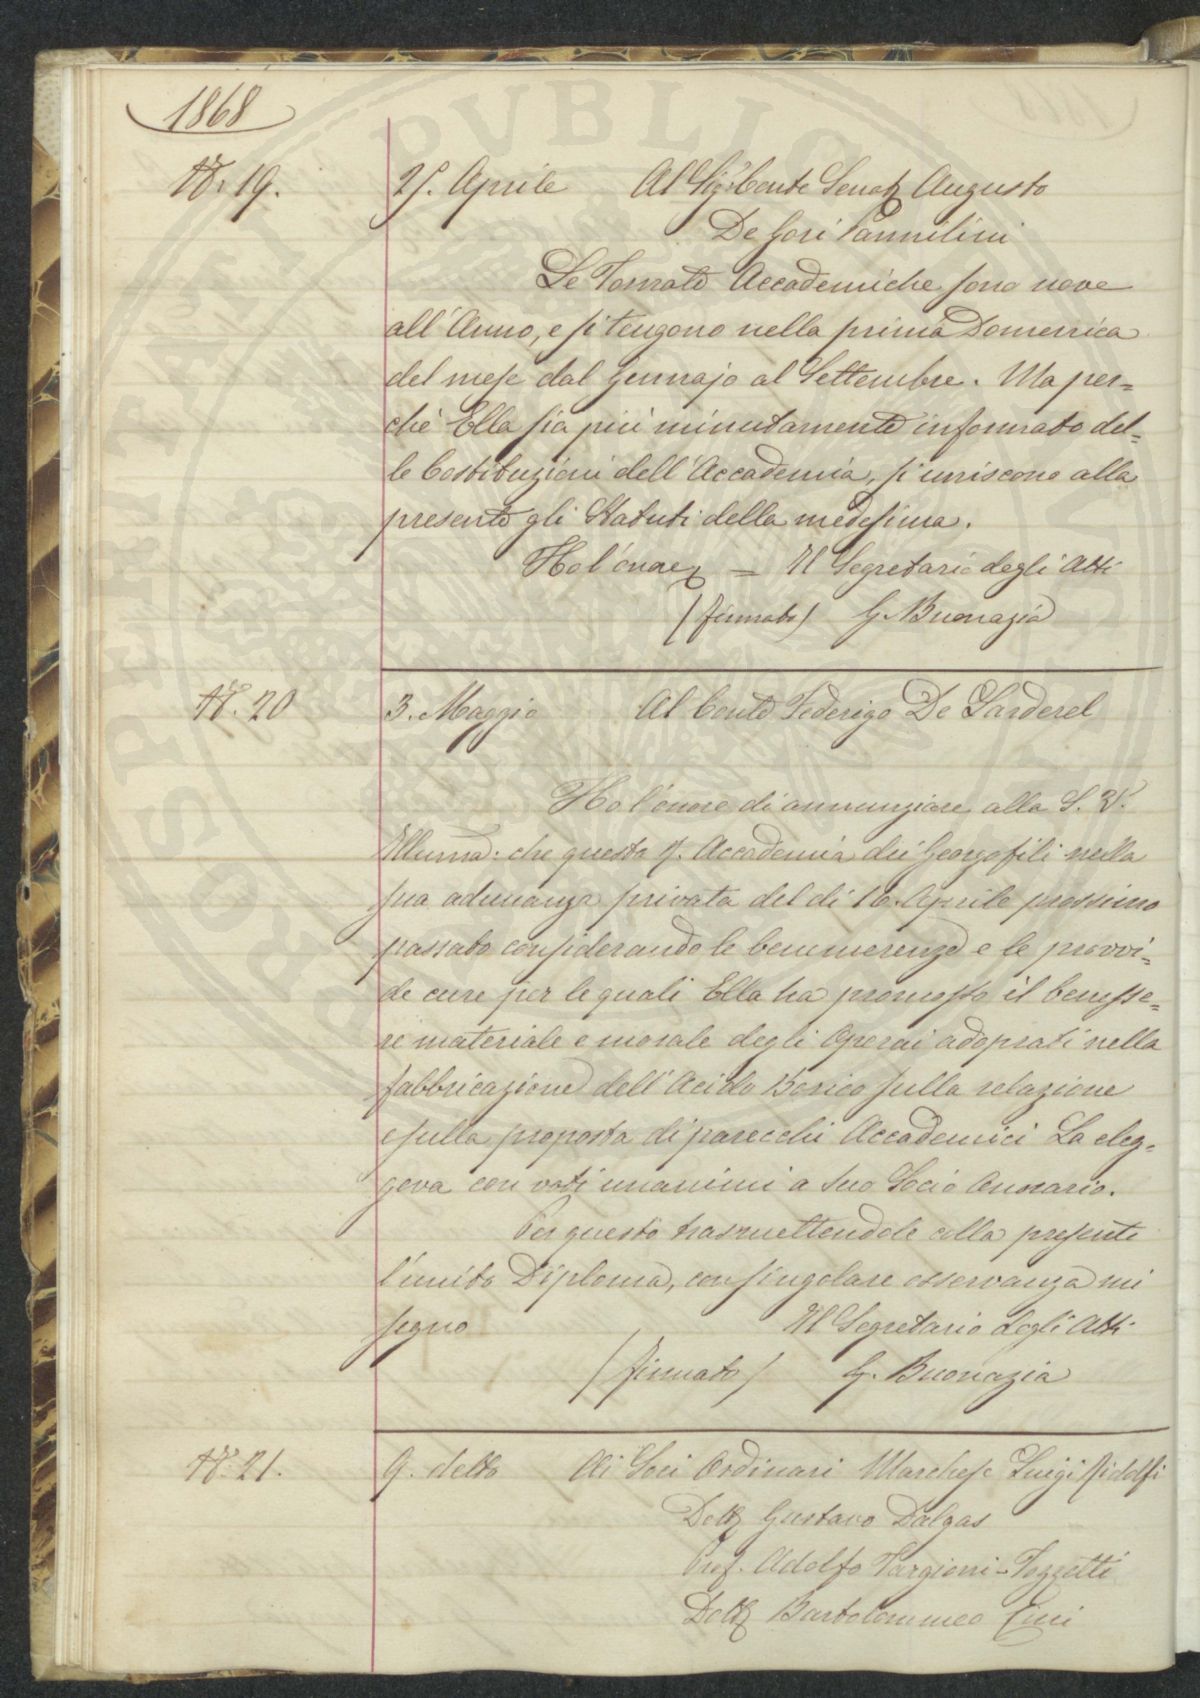 1868
N.° 19. 25. Aprile Al Sig.r Conte Senat.e Augusto
De Gori Pannilini
Le Tornate Accademiche sono nove
all'Anno, e si tengono nella prima Domenica
del mese dal Gennajo al Settembre. Ma per=
chè Ella sia più minutamente informato del=
le Costituzioni dell'Accademia, si uniscono alla
presente gli Statuti della medesima.
Ho l'onore = Il Segretario degli Atti
(firmato) G. Buonazia
N.° 20 3. Maggio Al Conte Federigo De Larderel
Ho l'onore di annunziare alla S. V.
Illuma: che questa R. Accademia dei Georgofili nella
sua adunanza privata del dì 16. Aprile prossimo
passato considerando le benemerenze e le provvi=
de cure per le quali Ella ha promosso il benesse=
re materiale e morale degli Operai adoprati nella
fabbricazione dell'Acido Borico sulla relazione
e sulla proposta di parecchi Accademici La eleg=
geva con voti unanimi a suo Socio Onorario.
Per questo trasmettendole colla presente
l'unito Diploma, con singolare osservanza mi
segno Il Segretario degli Atti
(firmato) G. Buonazia
N.° 21. 9. detto Ai Soci Ordinari Marchese Luigi Ridolfi
Dott. Gustavo Dalgas
Prof. Adolfo Targioni-Tozzetti
Dott. Bartolommeo Cini
PUBLICAE
PROSPERITATI